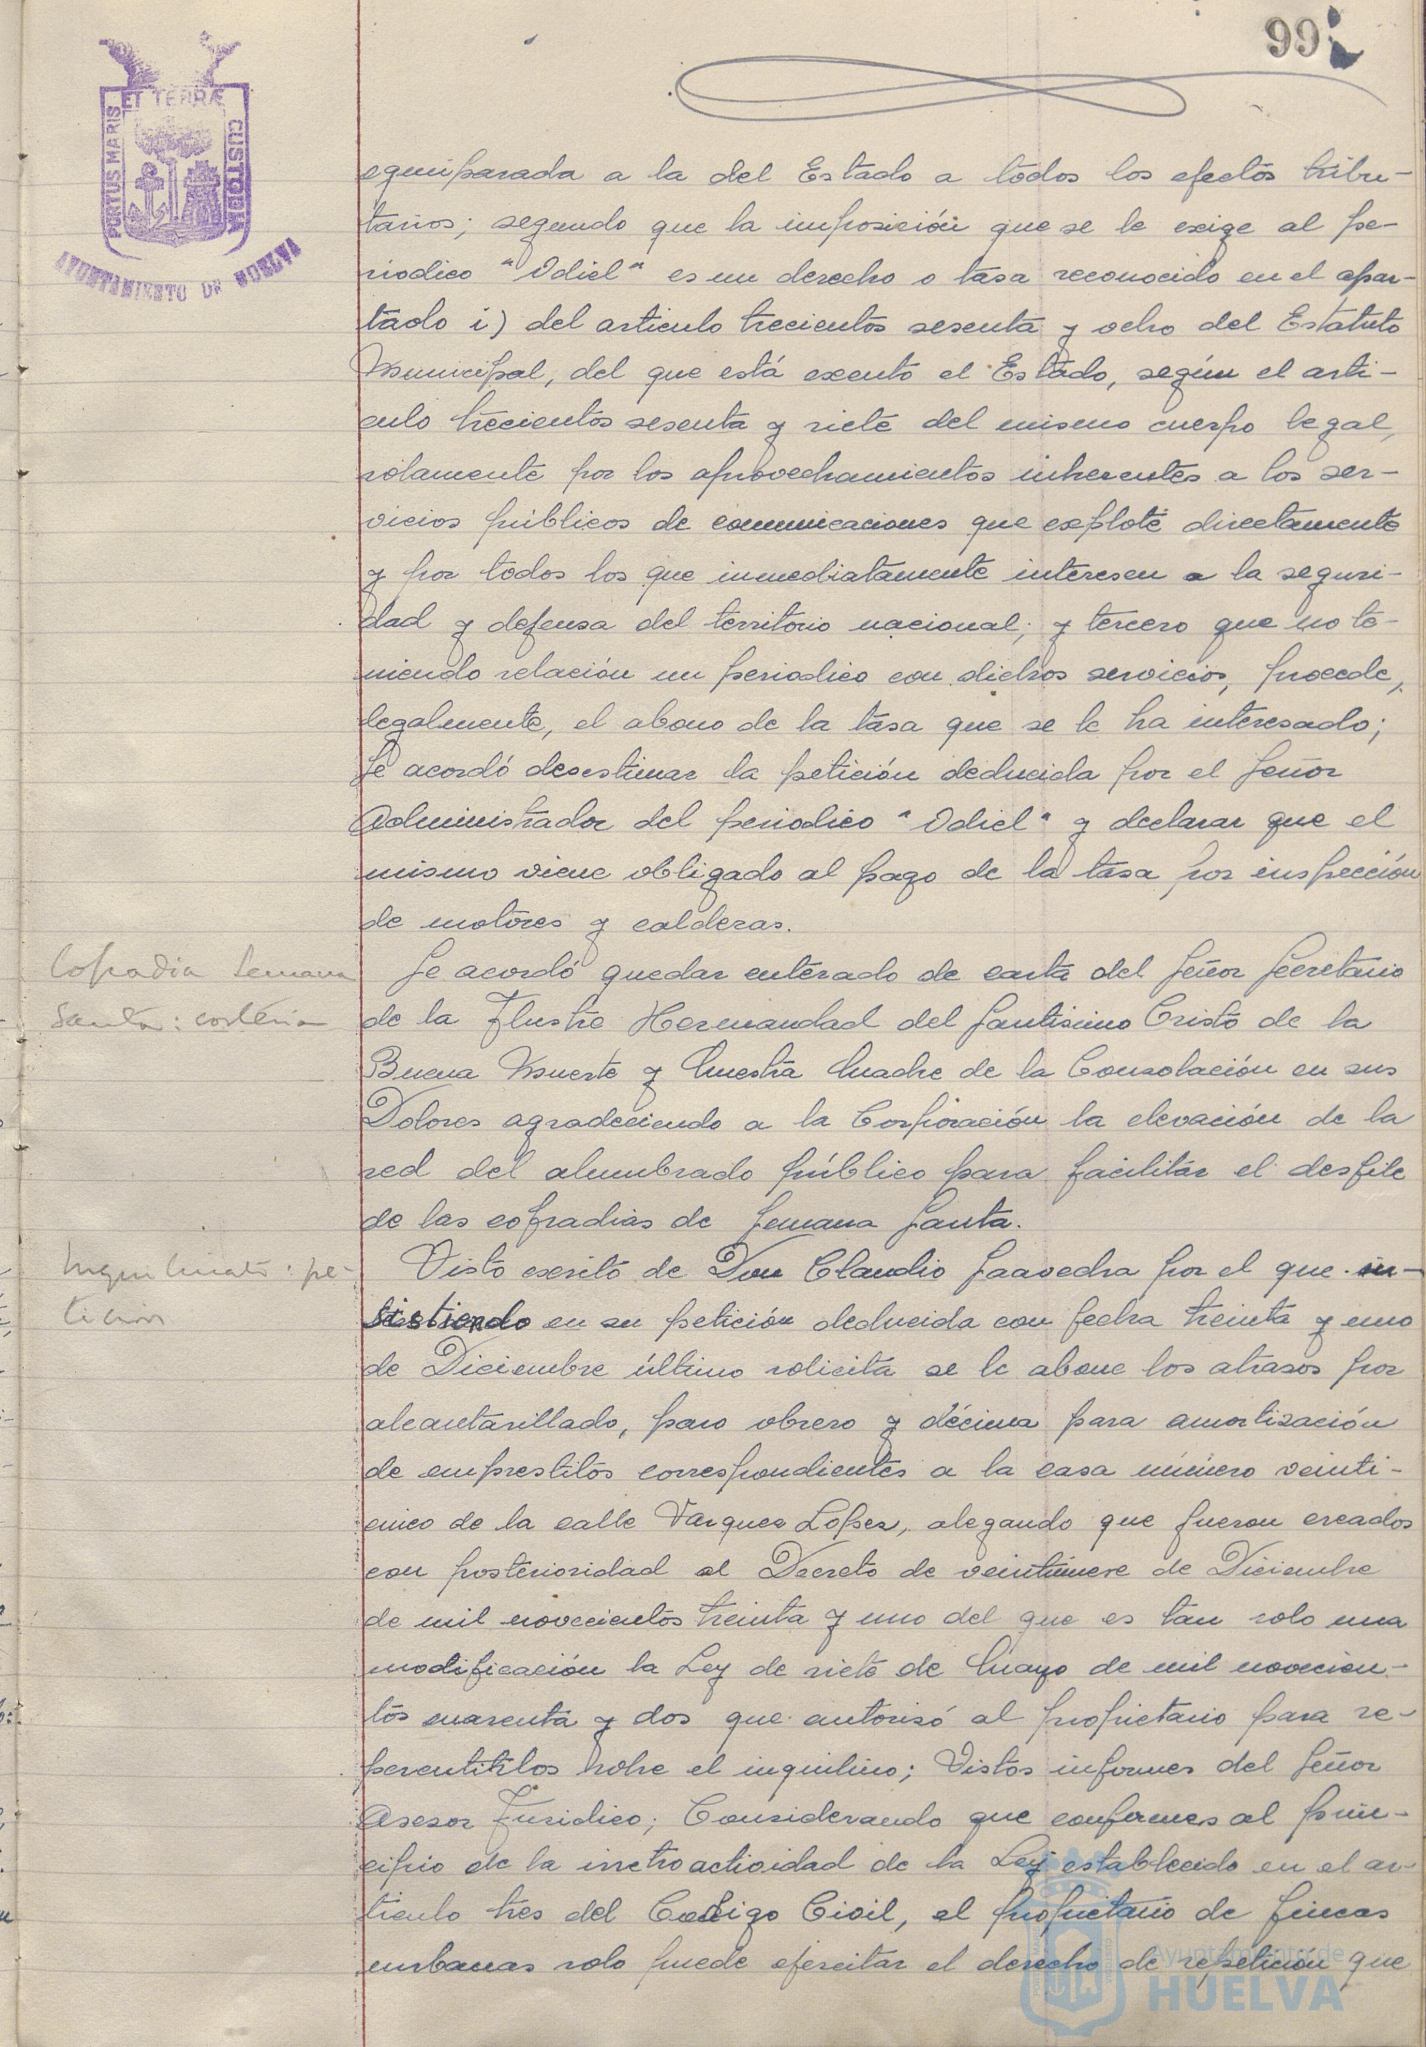 99
PORTUS MARIS ET TERRÆ CUSTODIA
AYUNTAMIENTO DE HUELVA
equiparada a la del Estado a todos los efectos tribu-
tarios; segundo que la imposición que se le exige al pe-
riodico "Odiel" es un derecho o tasa reconocido en el apar-
tado i) del articulo trecientos sesenta y ocho del Estatuto
Municipal, del que está exento el Estado, según el arti-
culo trecientos sesenta y siete del mismo cuerpo legal,
solamente por los aprovechamientos inherentes a los ser-
vicios públicos de comunicaciones que explote directamente
y por todos los que inmediatamente interesen a la seguri-
dad y defensa del territorio nacional; y tercero que no te-
niendo relación un periodico con dichos servicios, procede,
legalmente, el abono de la tasa que se le ha interesado;
Se acordó desestimar la petición deducida por el Señor
Administrador del periodico "Odiel" y declarar que el
mismo viene obligado al pago de la tasa por inspección
de motores y calderas.
Cofradia Semana
Santa: cortesia
Se acordó quedar enterado de carta del Señor Secretario
de la Ilustre Hermandad del Santisimo Cristo de la
Buena Muerte y Nuestra Madre de la Consolación en sus
Dolores agradeciendo a la Corporación la elevación de la
red del alumbrado público para facilitar el desfile
de las cofradias de Semana Santa.
Inquilinato: pe-
tición
Visto escrito de Don Claudio Saavedra por el que in-
sistiendo en su petición deducida con fecha treinta y uno
de Diciembre último solicita se le abone los atrasos por
alcantarillado, paro obrero y décima para amortización
de emprestitos correspondientes a la casa número veinti-
cinco de la calle Vazquez Lopez, alegando que fueron creados
con posterioridad al Decreto de veintinueve de Diciembre
de mil novecientos treinta y uno del que es tan solo una
modificación la Ley de siete de Mayo de mil novecien-
tos cuarenta y dos que autorisó al propietario para re-
percutirlos sobre el inquilino; Vistos informes del Señor
Asesor Juridico; Considerando que conformes al prin-
cipio de la irretroactividad de la Ley establecido en el ar-
ticulo tres del Codigo Civil, el propietario de fincas
urbanas solo puede ejercitar el derecho de repetición que
Ayuntamiento de
HUELVA